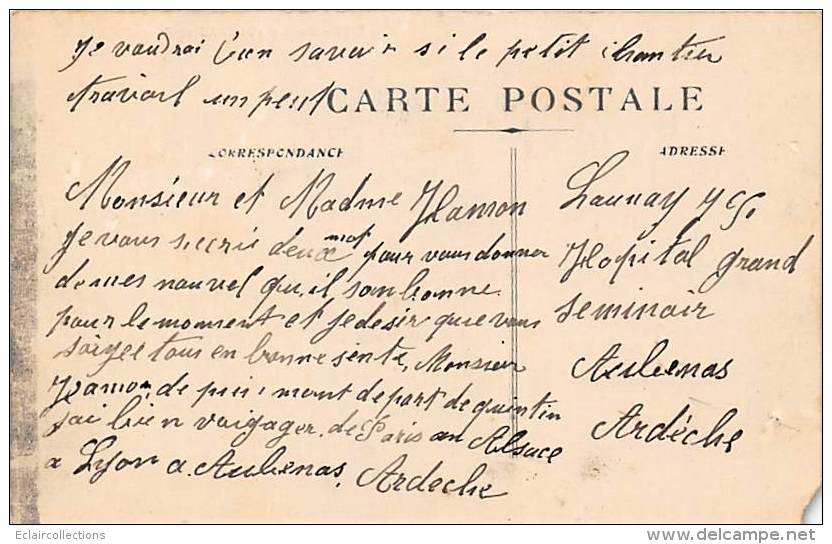 Je voudrai bien savoir si le petit chantier
travail un peut
CARTE POSTALE
CORRESPONDANCE
ADRESSE
Monsieur et Madme Hamon
Je vous secris deux mot pour vous donner
de mes nouvel qui, il son bonne
pour le moment et je desir que vous
soiyee tous en bonne sente, Monsieur
Hamon, de puis mont depart de quintin
jai bien voigager. de Paris au Alsace
a Lyon a. Aubenas, Ardeche
Launay yes
Hopital grand
seminair
Aubenas
Ardèche
Eclaircollections
delcampe.net